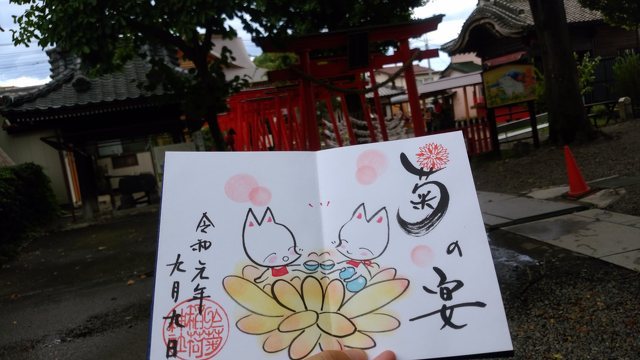 菊の宴
令和元年
九月九日